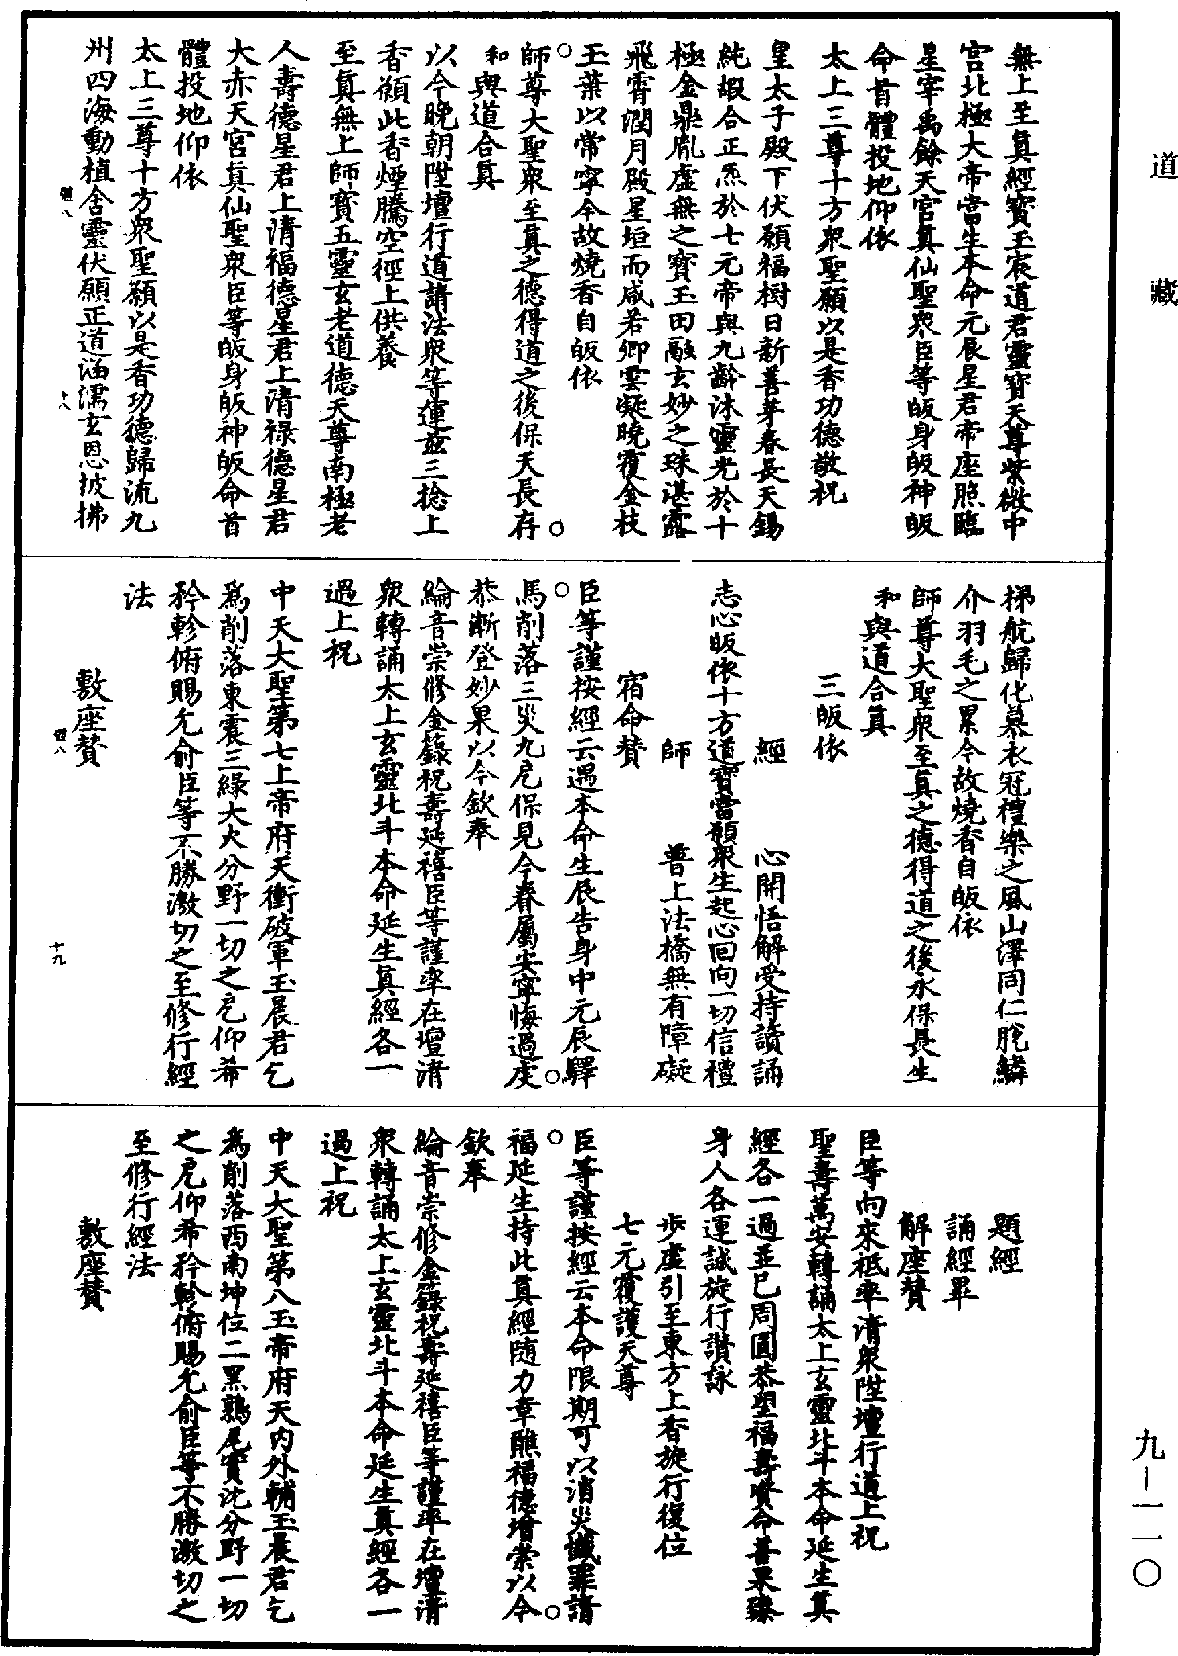 道藏
無上至真經寶玉宸道君靈寶天尊紫微中
宮北極大帝當生本命元辰星君帝座照臨
星宰禹餘天宮真仙聖眾臣等皈身皈神皈
命首體投地仰依
太上三尊十方眾聖願以是香功德敬祝
皇太子殿下伏願福樹日新善芽春長天錫
純嘏合正炁於七元帝與九齡沐靈光於十
極金鼎胤虛無之寶玉田融玄妙之珠湛露
飛霄潤月殿星垣而咸若卿雲凝曉覆金枝
玉葉以常寧今故燒香自皈依
師尊大聖眾至真之德得道之後保天長存
和與道合真
以今晚朝陞壇行道請法眾等運茲三捻上
香願此香煙騰空徑上供養
至真無上師寶五靈玄老道德天尊南極老
人壽德星君上清福德星君上清祿德星君
大赤天宮真仙聖眾臣等皈身皈神皈命首
體投地仰依
太上三尊十方眾聖願以是香功德歸流九
州四海動植含靈伏願正道涵濡玄恩披拂
梯航歸化慕衣冠禮樂之風山澤同仁脫鱗
介羽毛之累今故燒香自皈依
師尊大聖眾至真之德得道之後永保長生
和與道合真
三皈依
經 心開悟解受持讀誦
志心皈依十方道寶當願眾生起心回向一切信禮
師 普上法橋無有障礙
宿命贊
臣等謹按經云遇本命生辰告身中元辰驛
馬削落三災九厄保見今眷屬安寧悔過虔
恭漸登妙果以今欽奉
綸音崇修金籙祝壽延禧臣等謹率在壇清
眾轉誦太上玄靈北斗本命延生真經各一
過上祝
中天大聖第七上帝府天衝破軍玉晨君乞
為削落東震三綠大火分野一切之厄仰希
矜軫俯賜允俞臣等不勝激切之至修行經
法
敷座贊
十九
題經
誦經畢
解座贊
臣等向來祗率清眾陞壇行道上祝
聖壽萬安轉誦太上玄靈北斗本命延生真
經各一過並已周圓恭望福壽資命善果臻
身人各運誠旋行讚詠
步虛引至東方上香旋行復位
七元覆護天尊
臣等謹按經云本命限期可以消災懺罪請
福延生持此真經隨力章醮福德增崇以今
欽奉
綸音崇修金籙祝壽延禧臣等謹率在壇清
眾轉誦太上玄靈北斗本命延生真經各一
過上祝
中天大聖第八玉帝府天內外輔玉晨君乞
為削落西南坤位二黑鶉尾實沈分野一切
之厄仰希矜軫俯賜允俞臣等不勝激切之
至修行經法
敷座贊
九—一一〇